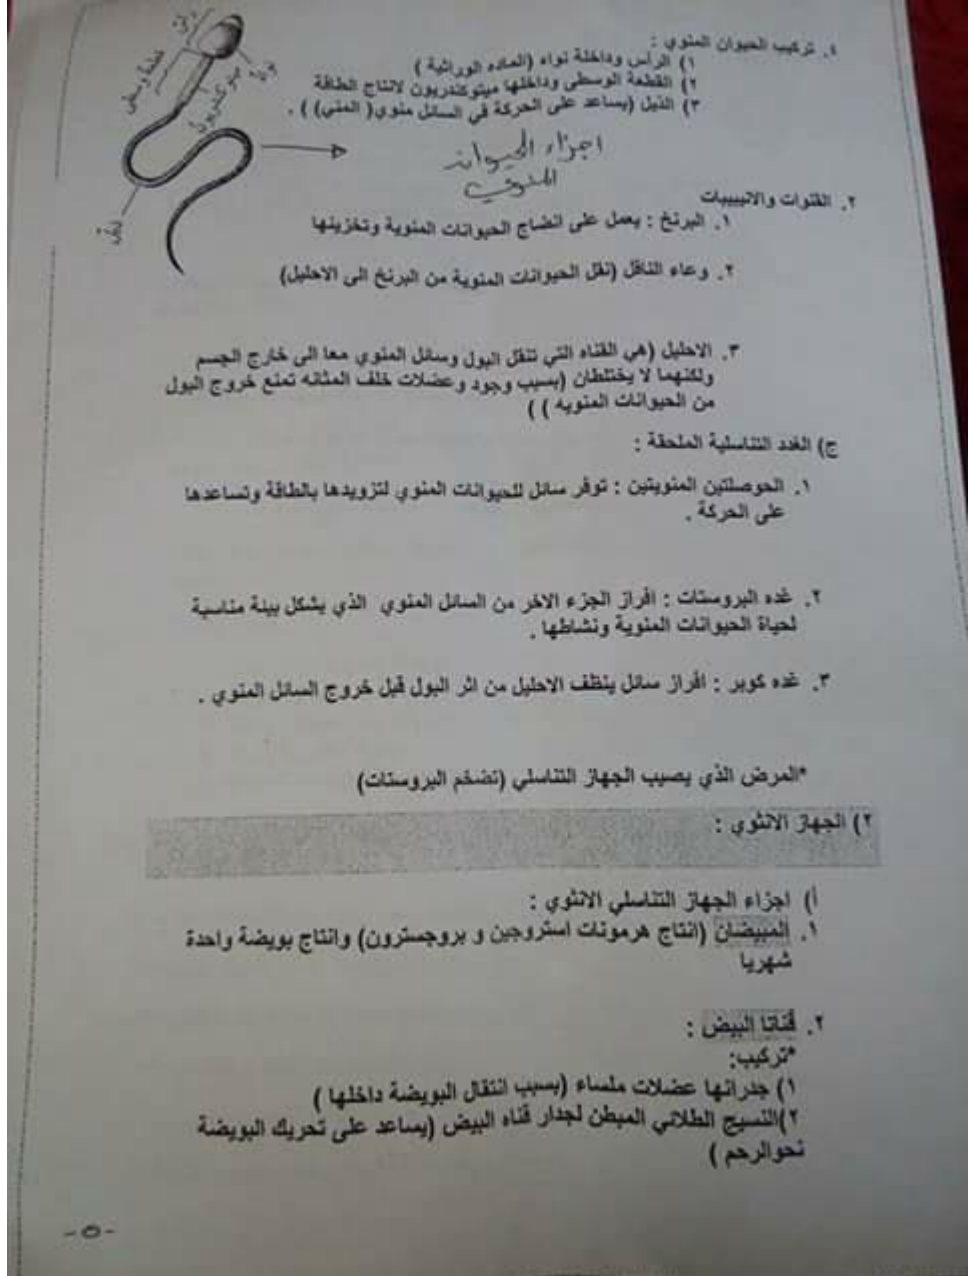 رأس
نواة
قطعة وسطى
ميتوكندريون
ذيل
٤. تركيب الحيوان المنوي :
١) الرأس وداخلة نواه (الماده الوراثية )
٢) القطعة الوسطى وداخلها ميتوكندريون لانتاج الطاقة
٣) الذيل (يساعد على الحركة في السائل منوي( المني) ) .
اجزاء الحيوان
المنوي
٢. القنوات والانيبيبات
١. البرنخ : يعمل على انضاج الحيوانات المنوية وتخزينها
٢. وعاء الناقل (نقل الحيوانات المنوية من البرنخ الى الاحليل)
٣. الاحليل (هي القناه التي تنقل البول وسائل المنوي معا الى خارج الجسم
ولكنهما لا يختلطان (بسبب وجود وعضلات خلف المثانه تمنع خروج البول
من الحيوانات المنويه ) )
ج) الغدد التناسلية الملحقة :
١. الحوصلتين المنويتين : توفر سائل للحيوانات المنوي لتزويدها بالطاقة وتساعدها
على الحركة .
٢. غده البروستات : افراز الجزء الاخر من السائل المنوي الذي يشكل بيئة مناسبة
لحياة الحيوانات المنوية ونشاطها .
٣. غده كوبر : افراز سائل ينظف الاحليل من اثر البول قبل خروج السائل المنوي .
*المرض الذي يصيب الجهاز التناسلي (تضخم البروستات)
٢) الجهاز الانثوي :
أ) اجزاء الجهاز التناسلي الانثوي :
١. المبيضان (انتاج هرمونات استروجين و بروجسترون) وانتاج بويضة واحدة
شهريا
٢. قناتا البيض :
*تركيب:
١) جدرانها عضلات ملساء (بسبب انتقال البويضة داخلها )
٢)النسيج الطلائي المبطن لجدار قناه البيض (يساعد على تحريك البويضة
نحوالرحم )
-٥-